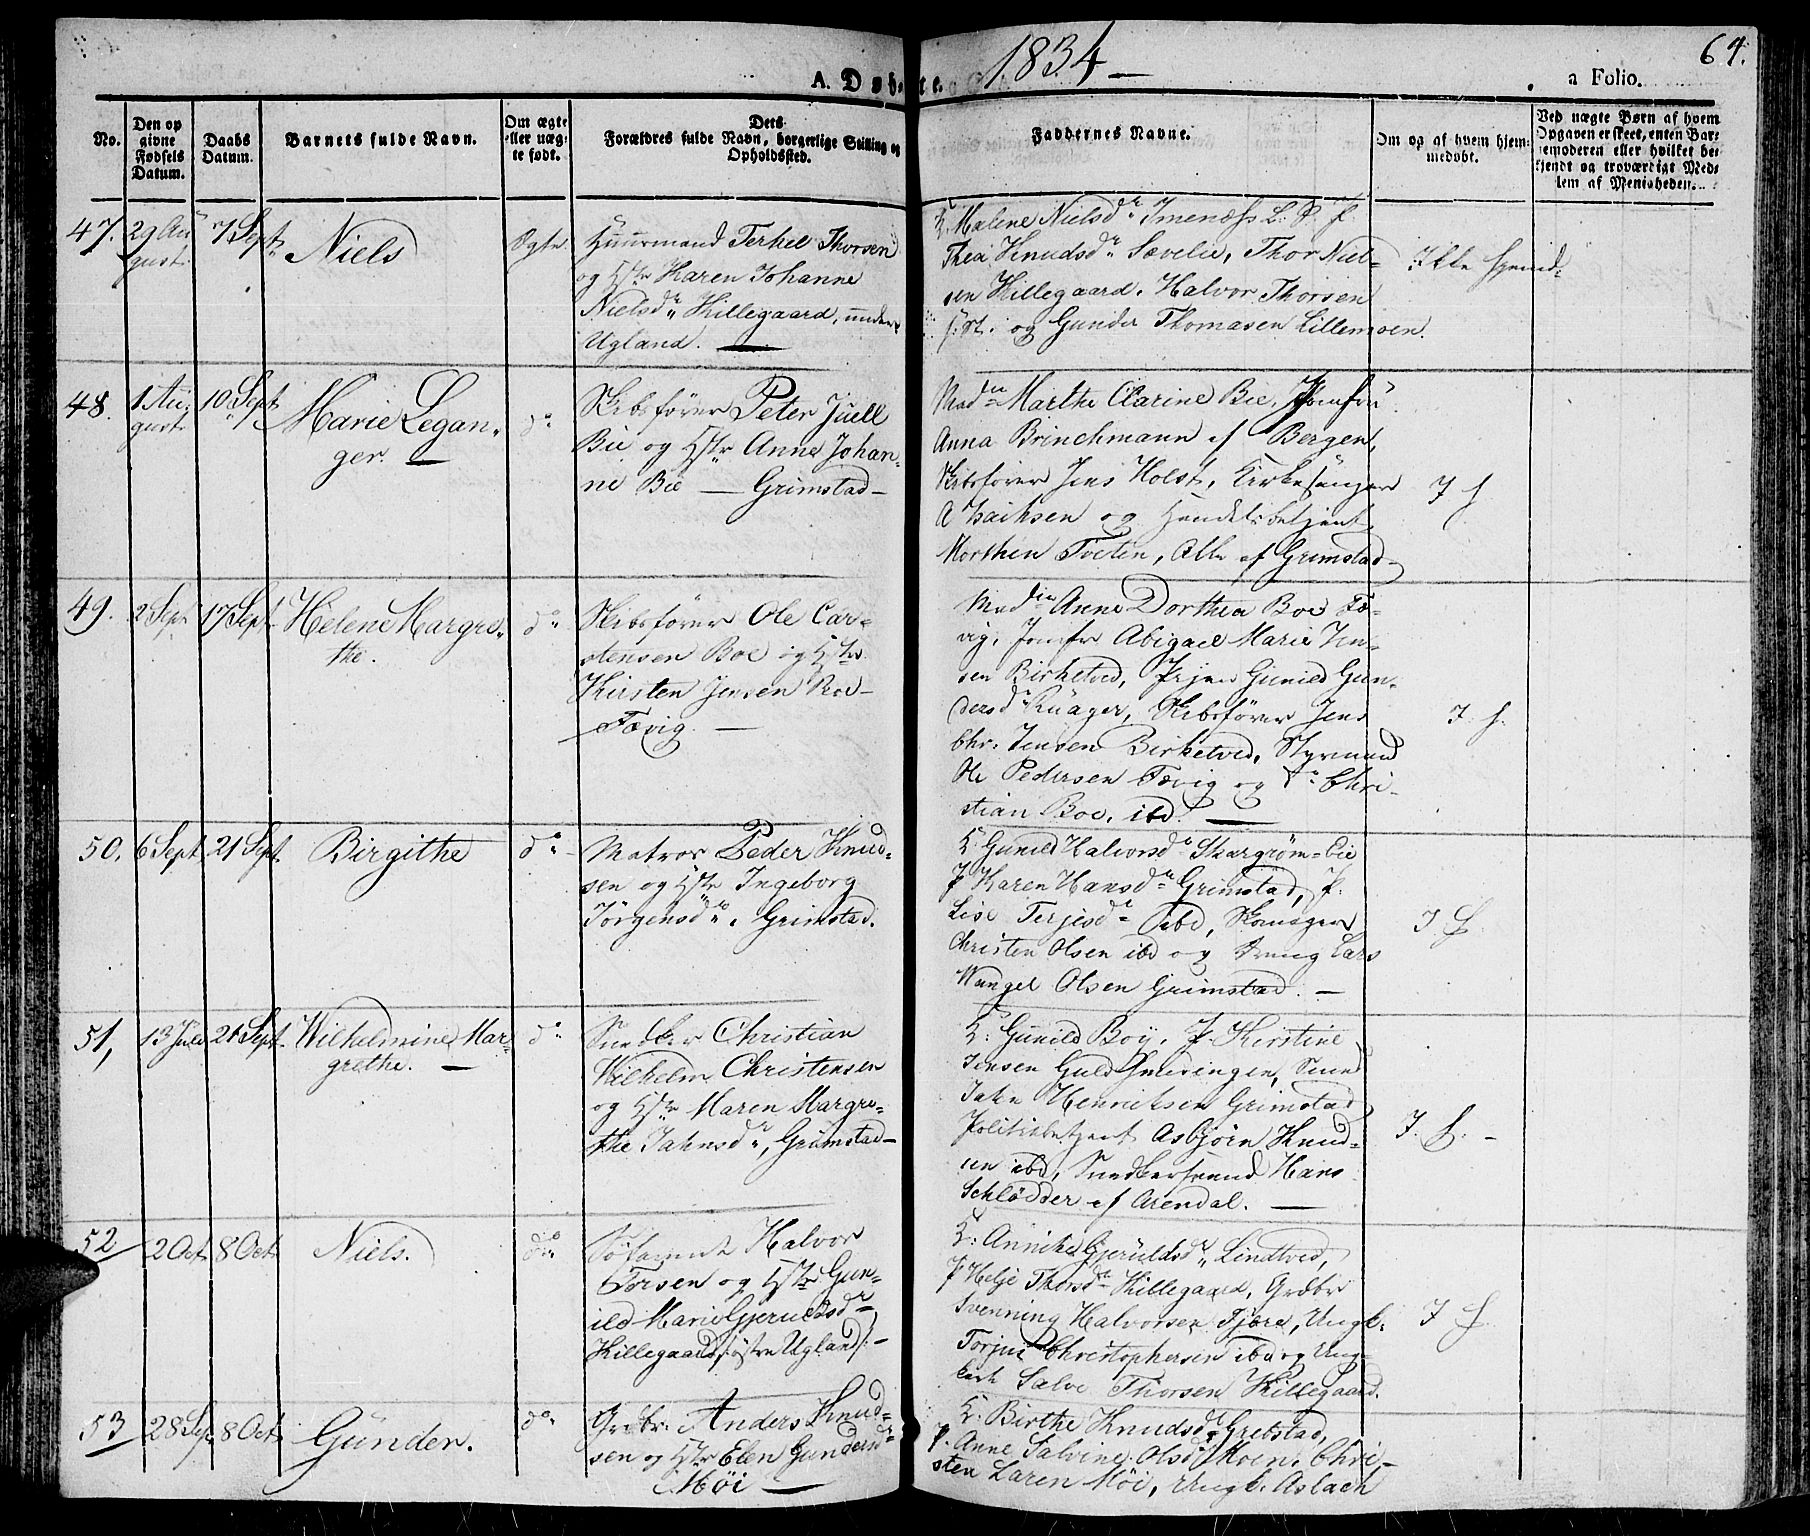 1834
64.
A. Døbte.
a Folio.
No.
Den op
givne
Fødsels
Datum.
Daabs
Datum.
Barnets fulde Navn.
Om ægte
eller uæg-
te født.
Dets
Forældres fulde Navn, borgerlige Stilling og
Opholdssted.
Faddernes Navne.
Om og af hvem hjem-
medøbt.
Ved uægte Børn af hvem
Opgaven er skeet, enten Bar-
nemoderen eller hvilket be-
kjendt og troværdigt Med-
lem af Menigheden.
47. 29 Au
gust
7 Sept
Niels
Ægte
Huusmand Terkel Thorsen
og Hstr Karen Johanne
Nielsdr Killegaard, under
Ugland.
K. Malene Nielsdr Imenæss L. P. P
Thea Knudsdr Sævelie, Thor Niel-
sen Killegaard, Halvor Thorsen
og Gunder Thomasen Lillemoen.
Ikke hjemd-
48. 1 Au-
gust
10 Sept
Marie Legan-
ger.
do
Skibsfører Peter Juell
Bie og Hstr Anne Johan-
ne Bie — Grimstad
Mad Marthe Clarine Bie, Jomfru
Anna Brinchmann af Bergen,
Skibsfører Jens Holst, Kirkesanger
A Isaiksen og Handelsbetjent
Morthen Toeten, Alle af Grimstad
J h
49. 2 Sept 17 Sept
Helene Margre-
the.
do
Skibsfører Ole Car-
stensen Boe og Hstr
Kirsten Jensen Boe
Fævig.
Mad Anne Dorthea Boe Fæ-
vig, Jomfr Abigael Marie Jen-
sen Birketved, Pigen Gunild Gun-
dersdr Ruager, Skibsfører Jens
Chr. Jensen Birketved, Styrmand
Ole Pedersen Fævig og do Chri-
stian Boe, ibd.
J. h.
50. 6 Sept 21 Sept.
Birgithe
do
Matros Peder Knud-
sen og Hstr Ingeborg
Jörgensdr Grimstad.
K. Gunild Halvorsdr Skargrøm-Eie
P Karen Hansdr Grimstad, P.
Lise Terjesdr ibd, Skomager
Christen Olsen ibd og dreng Lars
Wangel Olsen Grimstad.
J h
51, 13 Juli 21 Sept.
Wilhelmine Mar-
grethe.
do
Snedker Christian
Wilhelm Christensen
og Hstr Maren Margre-
the Jahnsdr, Grimstad
K: Gunild Boy, P. Kirstine
Jensen Guldsmedingen, Smed
Jahn Henriksen Grimstad
Politiebetjent Asbjörn Knud-
sen ibd, Snedkersvend Hans
Schlødder af Arendal.
J. h. -
52 2 Oct 8 Oct
Niels.
do
Søfarende Halvor
Torsen og Hstr Gun-
ild Marie Gjeruldsdr
Killegaard /: østre Ugland :/
K: Annike Gjeruldsdr Lindtved,
P Helje Thorsdr Killegaard, Grdbr
Svenning Halvorsen Fjære, Ungk.
Torjus Christophersen ibd og Ung-
karl Salve Thorsen Killegaard.
J h
53 28 Sep 8 Oct
Günder.
do
Grdbr. Anders Knud-
sen og Hstr Elen Gundersdr
Møi
K: Birthe Knudsdr Grebstad,
P. Anne Salvine Olsdr Moen, Chri-
sten Laren Møi, Ungk. Aslach